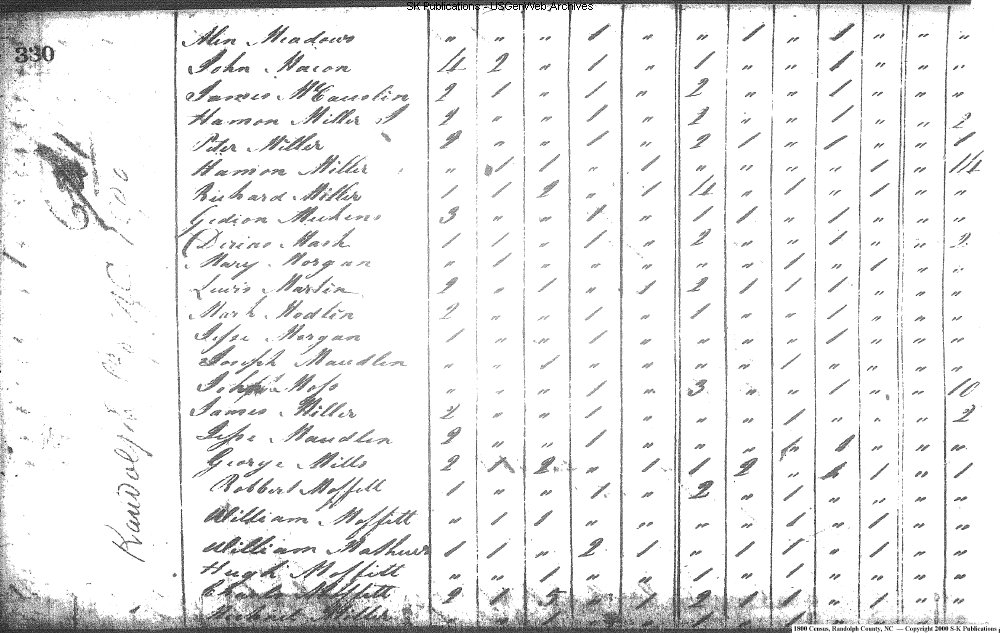 SK Publications - USGenWeb Archives
330
Randolph Co NC 1800
Alen Meadows " " " 1 " " 1 " 1 " " "
John Macon 4 2 " 1 " 1 " " 1 " " "
James McCauslin 2 1 " 1 " 2 " " 1 " " "
Hamon Miller 2 " " 1 " 2 " " 1 " " 2
Peter Miller 2 " " 1 " 2 1 " 1 " " 1
Hamon Miller " 1 1 " 1 " " " " 1 " 14
Richard Miller 1 1 2 " 1 4 " 1 " 1 " "
Gedion 3 " " 1 " 1 1 " 1 " " "
Mash 1 1 " 1 " 2 " " 1 " " 2
Mary Morgan " 1 " " " " " 1 " 1 " "
Lewis Martin 2 " 1 " 1 2 1 1 1 " " "
Mark Modlin 2 " " 1 " 1 " " 1 " " "
Jesse Morgan 1 " " 1 " " " " 1 " " "
Joseph Maudlin " " 1 " " " " 1 " " " "
John Moss " " " 1 " 3 " " 1 " " 10
James Miller 2 " " 1 " " " 1 " " " 2
Jesse Maudlin 2 " " 1 " " " 1 1 " " "
George Mills 2 1 2 " 1 1 2 " 1 1 " 1
Robbert Moffett 1 " " 1 " 2 " 1 " " " "
William Moffett " 1 1 " " " " 1 " 1 " "
William 1 1 " 2 1 " 1 1 " 1 " "
Hugh Moffett " " 1 " " 1 " 1 " " " "
Charles Moffett 2 1 " 1 2 1 1 " 1 " "
Miller
1800 Census, Randolph County, NC — Copyright 2000 S-K Publications